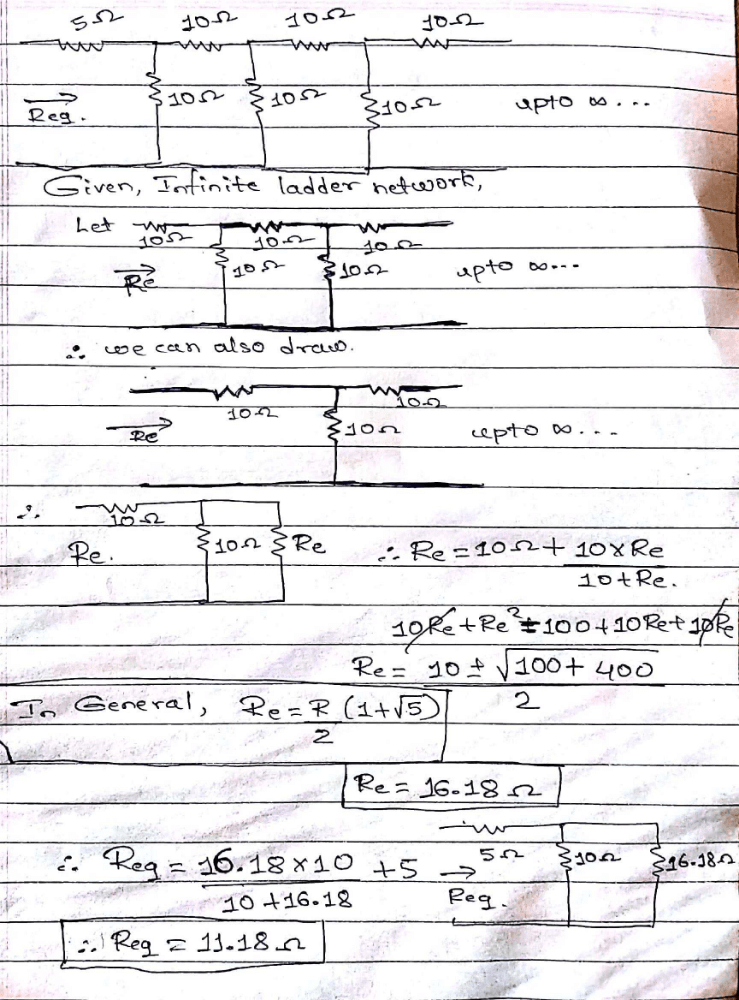 5Ω 10Ω 10Ω 10Ω
10Ω 10Ω 10Ω upto ∞...
Req.
Given, Infinite ladder network,
Let 10Ω 10Ω 10Ω
Re 10Ω 10Ω upto ∞...
∴ we can also draw.
10Ω 10Ω
Re 10Ω upto ∞...
∴ 10Ω
Re. 10Ω Re ∴ Re = 10Ω + 10×Re
10+Re.
10Re + Re² = 100 + 10Re + 10Re
Re = 10 ± √100 + 400
2
In General, Re = R (1+√5)
2
Re = 16.18 Ω
∴ Req = 16.18 × 10 + 5
10 + 16.18
5Ω 10Ω 16.18Ω
Req.
∴ Req = 11.18 Ω